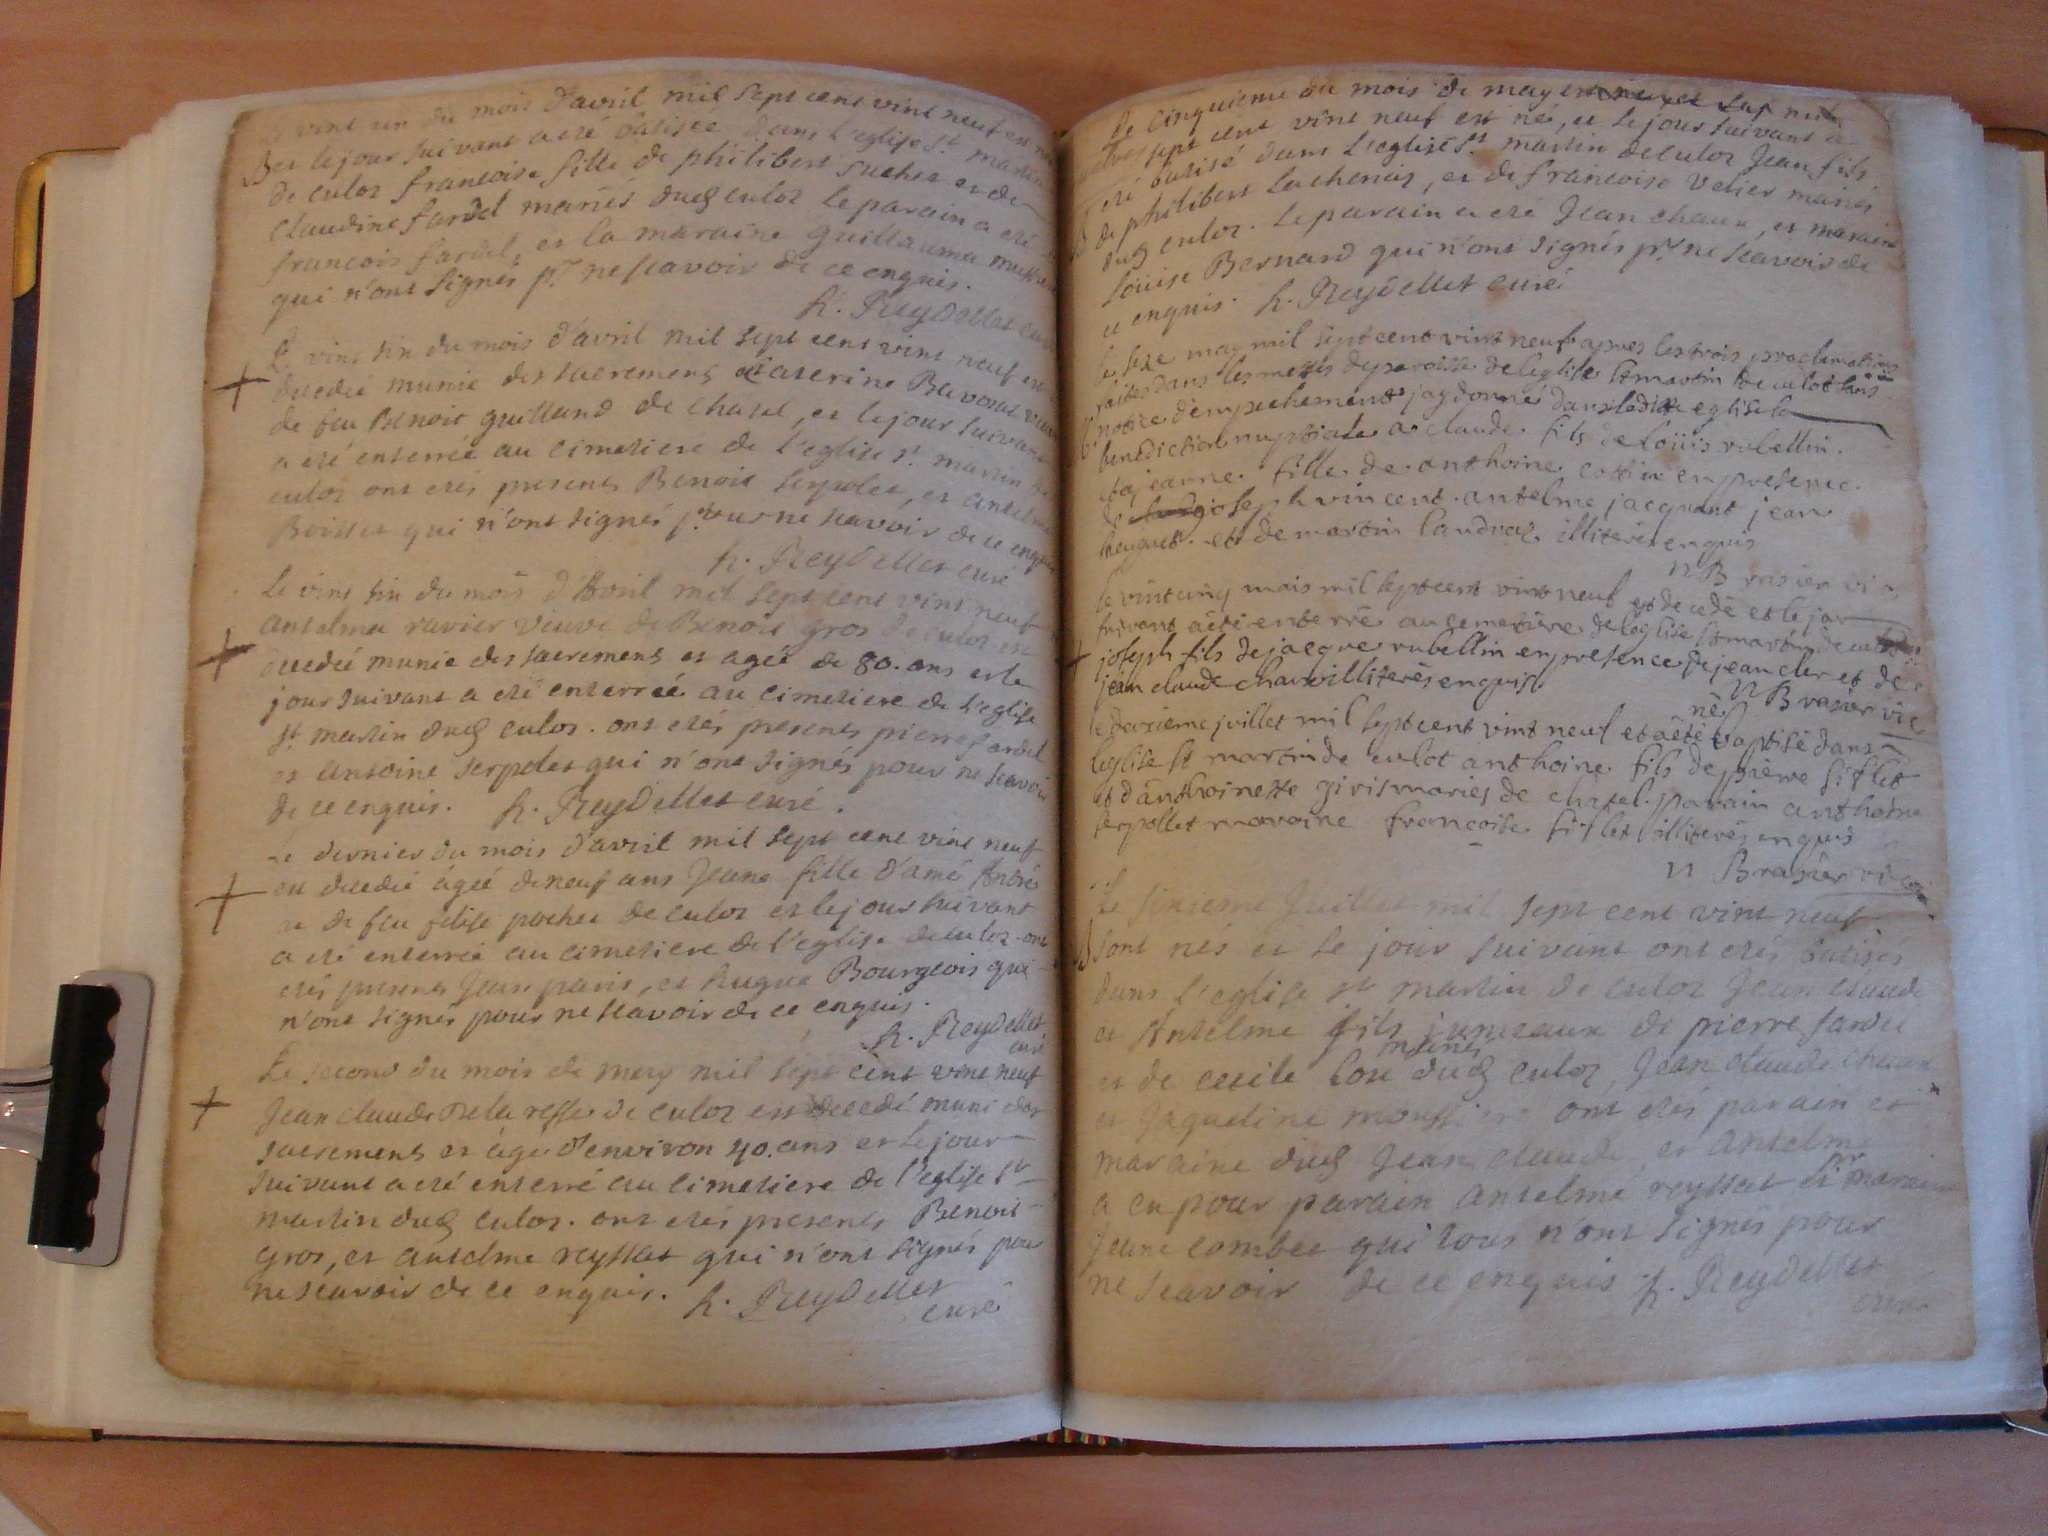 vint un du mois d'avril mil sept cent vint neuf est
B et le jour suivant a eté batisée dans l'eglise St. martin
de culoz francoise fille de philibert suchet et de
claudine fardel mariés dudt culoz le parain a eté
francois fardel, et la maraine guillauma
qui n'ont signés pr. ne scavoir de ce enquis.
h. Reydellet curé
Le vint sin du mois d'avril mil sept cent vint neuf est
+ decedée munie des sacremens Caterine veuve
de feu Benoit guilland de chatel, et le jour suivant
a eté enterrée au cimetiere de l'eglise St. martin
culoz ont etés presents Benoit serpolet, et antelme
qui n'ont signés pour ne scavoir de ce enquis
h. Reydellet curé
Le vint sin du mois d'Avril mil sept cent vint neuf
antelma ravier veuve de Benoit gros de culoz est
+ decedée munie des sacremens et agée de 80. ans et le
jour suivant a eté enterrée au cimetiere de l'eglise
St. martin dudt culoz. ont etés presents pierre fardel
et antoine serpolet qui n'ont signés pour ne scavoir
de ce enquis. h. Reydellet curé.
Le dernier du mois d'avril mil sept cent vint neuf
+ est decedée âgée de neuf ans Jeane fille d'amé André
et de feu pochet de culoz et le jour suivant
a eté enterrée au cimetiere de l'eglise de culoz. ont
etés presents Jean paris, et hugue Bourgeois qui
n'ont signés pour ne scavoir de ce enquis.
h. Reydellet
curé
Le second du mois de may mil sept cent vint neuf
+ Jean claude de culoz est decedé muni des
sacremens et âgé d'environ 40. ans et le jour
suivant a eté enterré au cimetiere de l'eglise St
martin dudt culoz. ont etés presents Benoit
gros, et antelme reyssat qui n'ont signés pour
ne scavoir de ce enquis. h. Reydellet
curé
Le cinquieme du mois de may
sept cent vint neuf est né, et le jour suivant a
B eté batisé dans l'eglise St. martin de culoz Jean fils
de philibert Luchenas, et de francoise velier mariés
dudt culoz. le parain a eté Jean chaux, et maraine
Loüise Bernard qui n'ont signés pr. ne scavoir de
ce enquis. h. Reydellet curé
may mil sept cent vint neuf apres les trois proclamations
faites dans les messes de paroisse de l'eglise St martin de culot sans
notice d'empechement jay donné dans la dite eglise la
benediction nuptiale a claude fils de loüis rubellin
et a jeanne fille de anthoine cottin en presence
de joseph vincent antelme jacquant jean
huguet et de martin landraz illiterés enquis
n Brasier vic
le vint cinq mais mil sept cent vint neuf est decedé et le jour
suivant a eté enterré au cemetiere de leglise St martin de culot
+ joseph fils de jacque rubellin en presence de jean cler et de
jean claude chaux illiterés enquis
n Brasier vic
né
le deuxieme juillet mil sept cent vint neuf et a eté baptisé dans
leglise St martin de culot anthoine fils de pierre siflet
et d'anthoinette giris mariés de chatel. parain anthoine
serpollet maraine francoise siflet illiterés enquis
n Brasier vic
Le sixieme Juillet mil sept cent vint neuf
B sont nés et le jour suivant ont etés batisés
dans l'eglise St martin de culoz Jean claude
et Antelme fils jumeaux de pierre fardel
mariés
et de cecile dudt culoz, Jean claude chaux
et Jaqueline ont etés parain et
maraine dudt Jean claude, et antelme
a eu pour parain antelme reyssat et pr maraine
jeane combet qui tous n'ont signés pour
ne scavoir de ce enquis h. Reydellet
curé